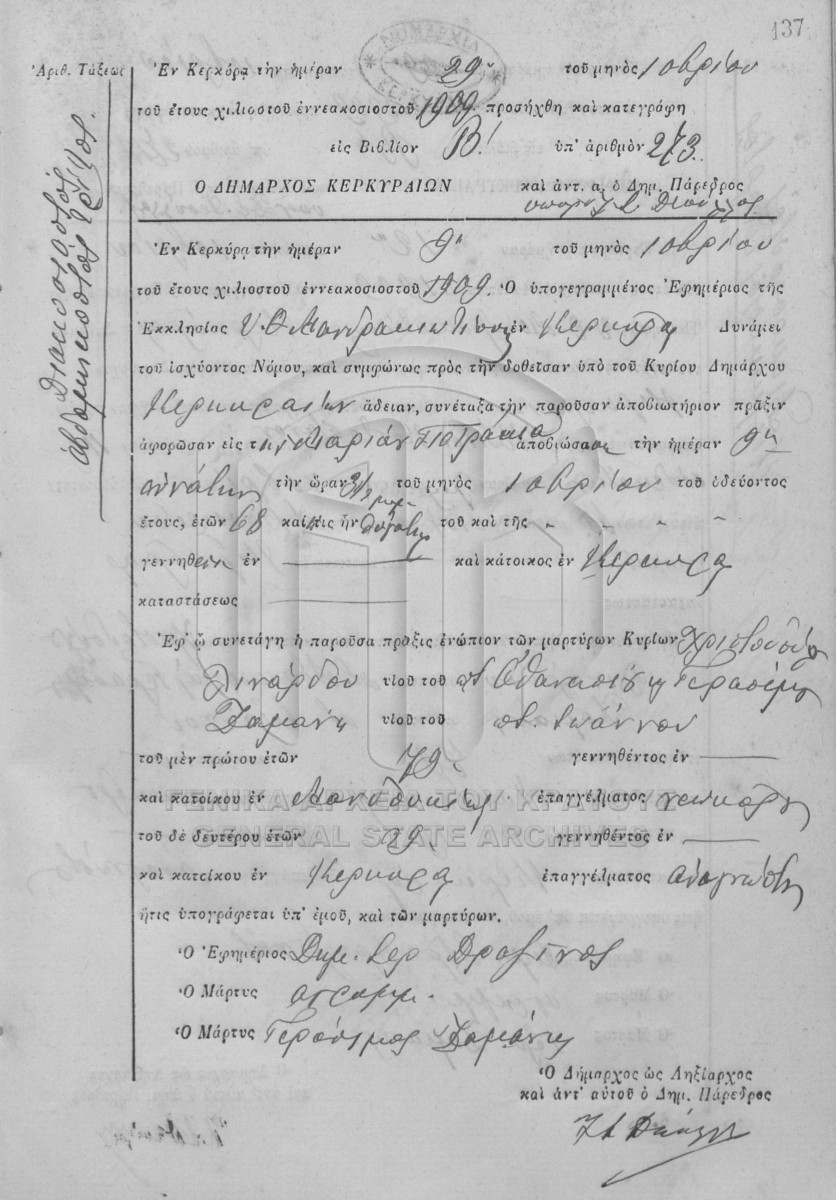 137
Ἀριθ. Τάξεως
Διακοσιοστός
ἑβδομηκοστός τρίτος.
ΝΟΜΑΡΧΙΑ
Ἐν Κερκύρᾳ τὴν ἡμέραν 29ῃ τοῦ μηνὸς 10βρίου
τοῦ ἔτους χιλιοστοῦ ἐννεακοσιοστοῦ 1909. προσήχθη καὶ κατεγράφη
εἰς Βιβλίον Β! ὑπ' ἀριθμὸν 273.
Ο ΔΗΜΑΡΧΟΣ ΚΕΡΚΥΡΑΙΩΝ καὶ ἀντ. α. ὁ Δημ. Πάρεδρος
Ἐν Κερκύρᾳ τὴν ἡμέραν 9ῃ τοῦ μηνὸς 10βρίου
τοῦ ἔτους χιλιοστοῦ ἐννεακοσιοστοῦ 1909. Ὁ ὑπογεγραμμένος Ἐφημέριος τῆς
Ἐκκλησίας Υ.Θ. Μανδρακιωτίσσης ἐν Κερκύρᾳ Δυνάμει
τοῦ ἰσχύοντος Νόμου, καὶ συμφώνως πρὸς τὴν δοθεῖσαν ὑπὸ τοῦ Κυρίου Δημάρχου
Κερκυραίων ἄδειαν, συνέταξα τὴν παροῦσαν ἀποβιωτήριον πρᾶξιν
ἀφορῶσαν εἰς τὴν Μαρίαν ἀποβιώσασαν τὴν ἡμέραν 9ῃ
τὴν ὥραν τοῦ μηνὸς 10βρίου τοῦ ὁδεύοντος
ἔτους, ἐτῶν 68 καὶ ἥτις ἦν θυγάτηρ τοῦ καὶ τῆς
γεννηθεῖσα ἐν καὶ κάτοικος ἐν Κερκύρᾳ
καταστάσεως
Ἐφ' ᾧ συνετάγη ἡ παροῦσα πρᾶξις ἐνώπιον τῶν μαρτύρων Κυρίων Χριστοδούλου
Λινάρδου υἱοῦ τοῦ ποτ. Ἀθανασίου καὶ Γερασίμου
Δαμιάνη υἱοῦ τοῦ ποτ. Ἰωάννου
τοῦ μὲν πρώτου ἐτῶν 79. γεννηθέντος ἐν
καὶ κατοίκου ἐν Μανδουκίῳ ἐπαγγέλματος
ΓΕΝΙΚΑ ΑΡΧΕΙΑ ΤΟΥ ΚΡΑΤΟΥΣ
GENERAL STATE ARCHIVES
τοῦ δὲ δευτέρου ἐτῶν 29. γεννηθέντος ἐν
καὶ κατοίκου ἐν Κερκύρᾳ ἐπαγγέλματος ἀναγνώστης
ἥτις ὑπογράφεται ὑπ' ἐμοῦ, καὶ τῶν μαρτύρων.
Ὁ Ἐφημέριος Δημ. Ἱερ.
Ὁ Μάρτυς ἀγράμμ.
Ὁ Μάρτυς Γεράσιμος Δαμιάνης
Ὁ Δήμαρχος ὡς Ληξίαρχος
καὶ ἀντ' αὐτοῦ ὁ Δημ. Πάρεδρος